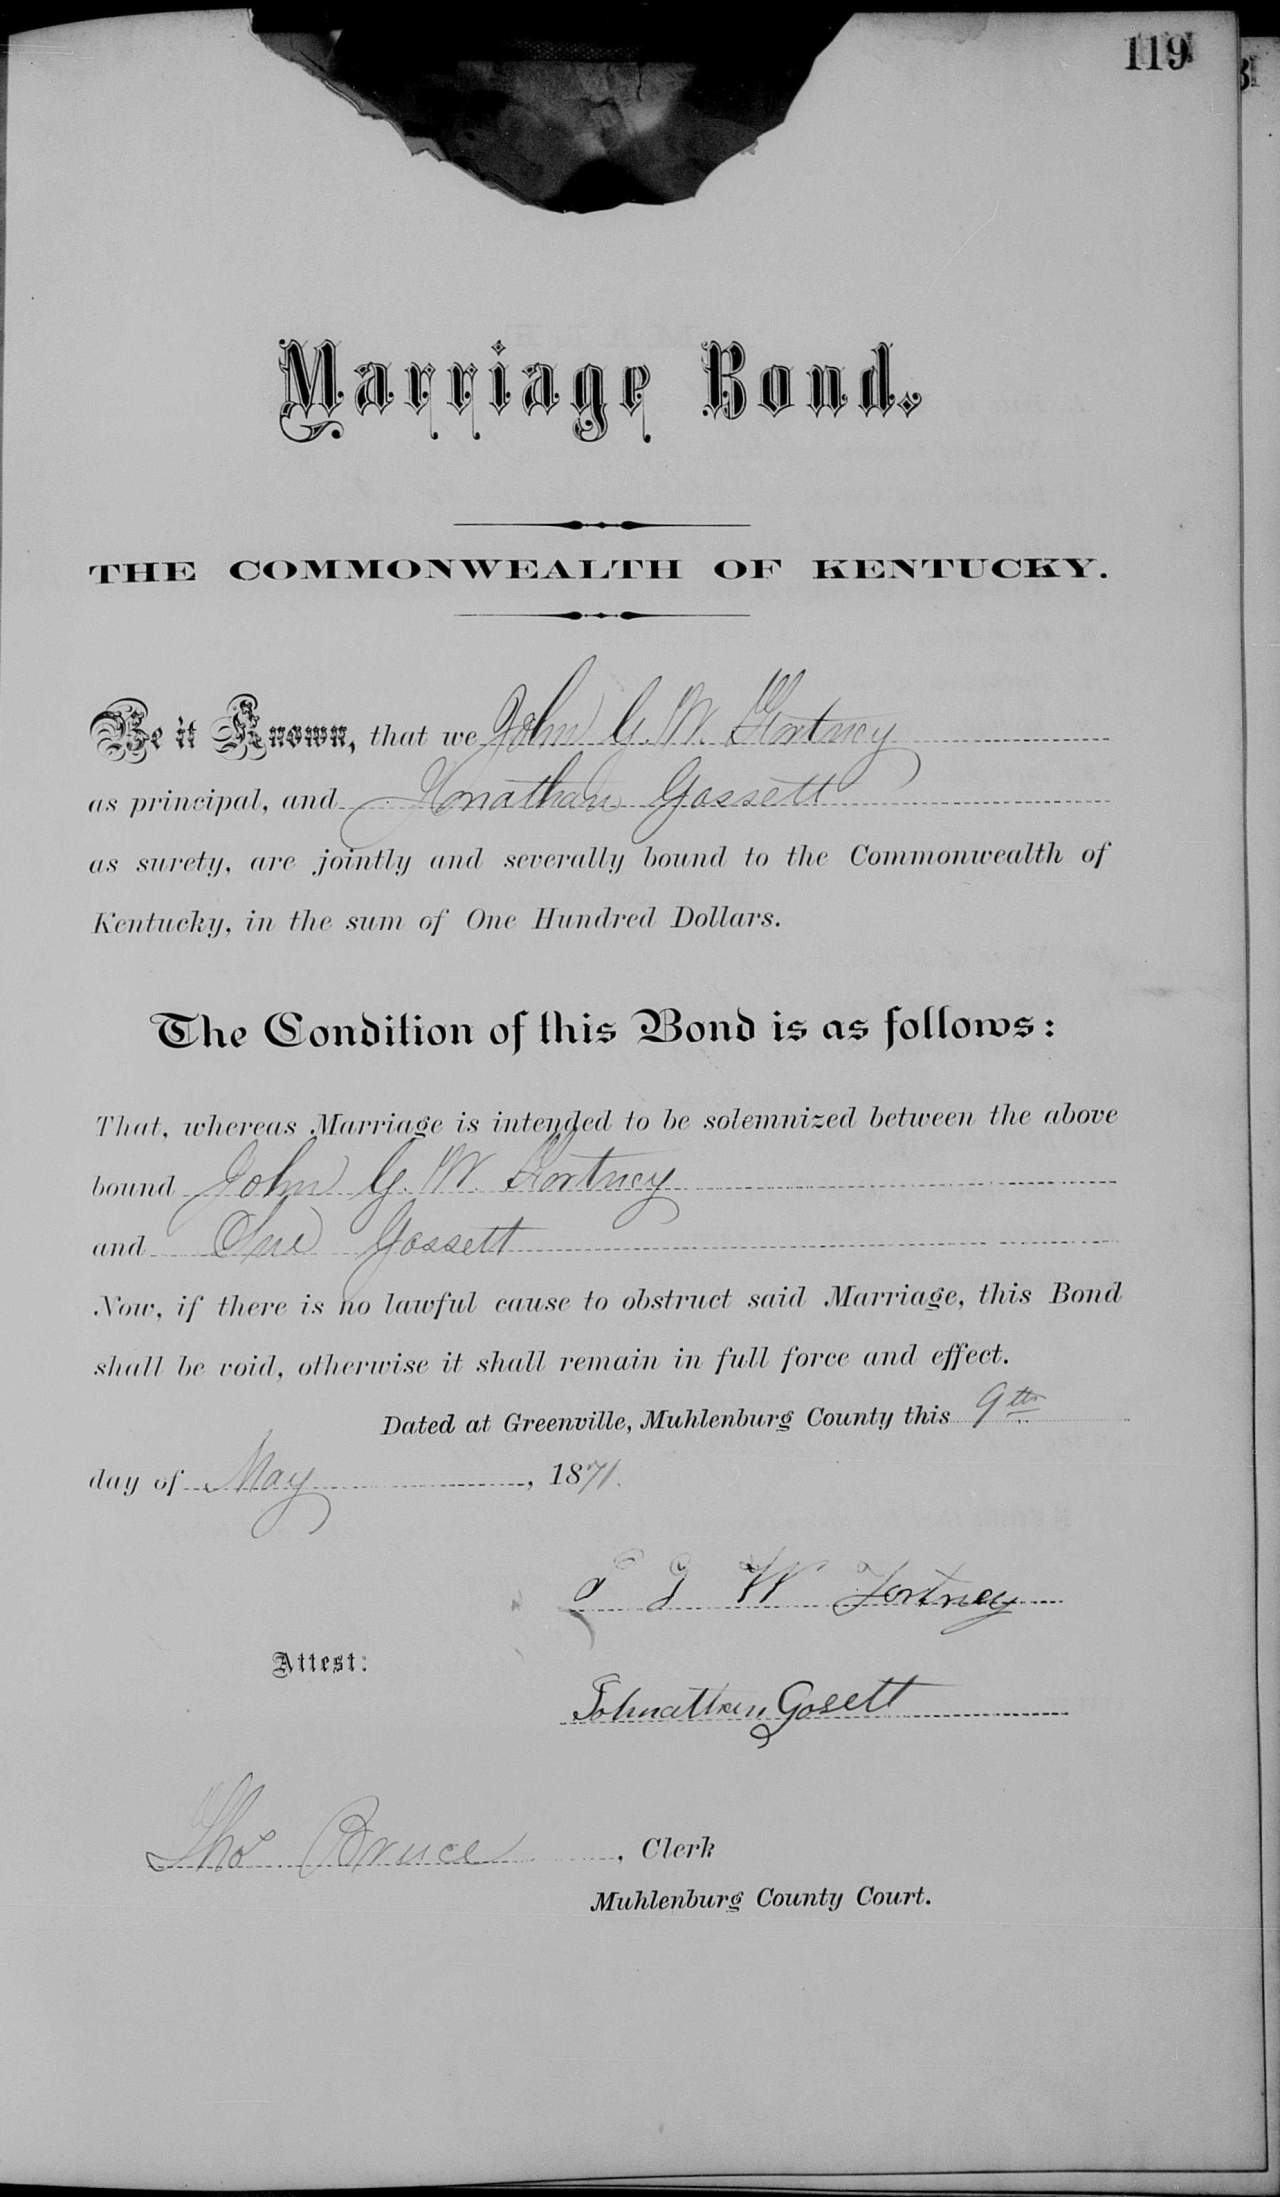 119
Marriage Bond.
THE COMMONWEALTH OF KENTUCKY.
Be it Known, that we John G. W. Fortney
as principal, and Jonathan Gossett
as surety, are jointly and severally bound to the Commonwealth of
Kentucky, in the sum of One Hundred Dollars.
The Condition of this Bond is as follows:
That, whereas Marriage is intended to be solemnized between the above
bound John G. W. Fortney
and Sue Gossett
Now, if there is no lawful cause to obstruct said Marriage, this Bond
shall be void, otherwise it shall remain in full force and effect.
Dated at Greenville, Muhlenburg County this 9th
day of May, 1871.
J G W Fortney
Attest:
Johnathan Gosett
Thos Bruce, Clerk
Muhlenburg County Court.